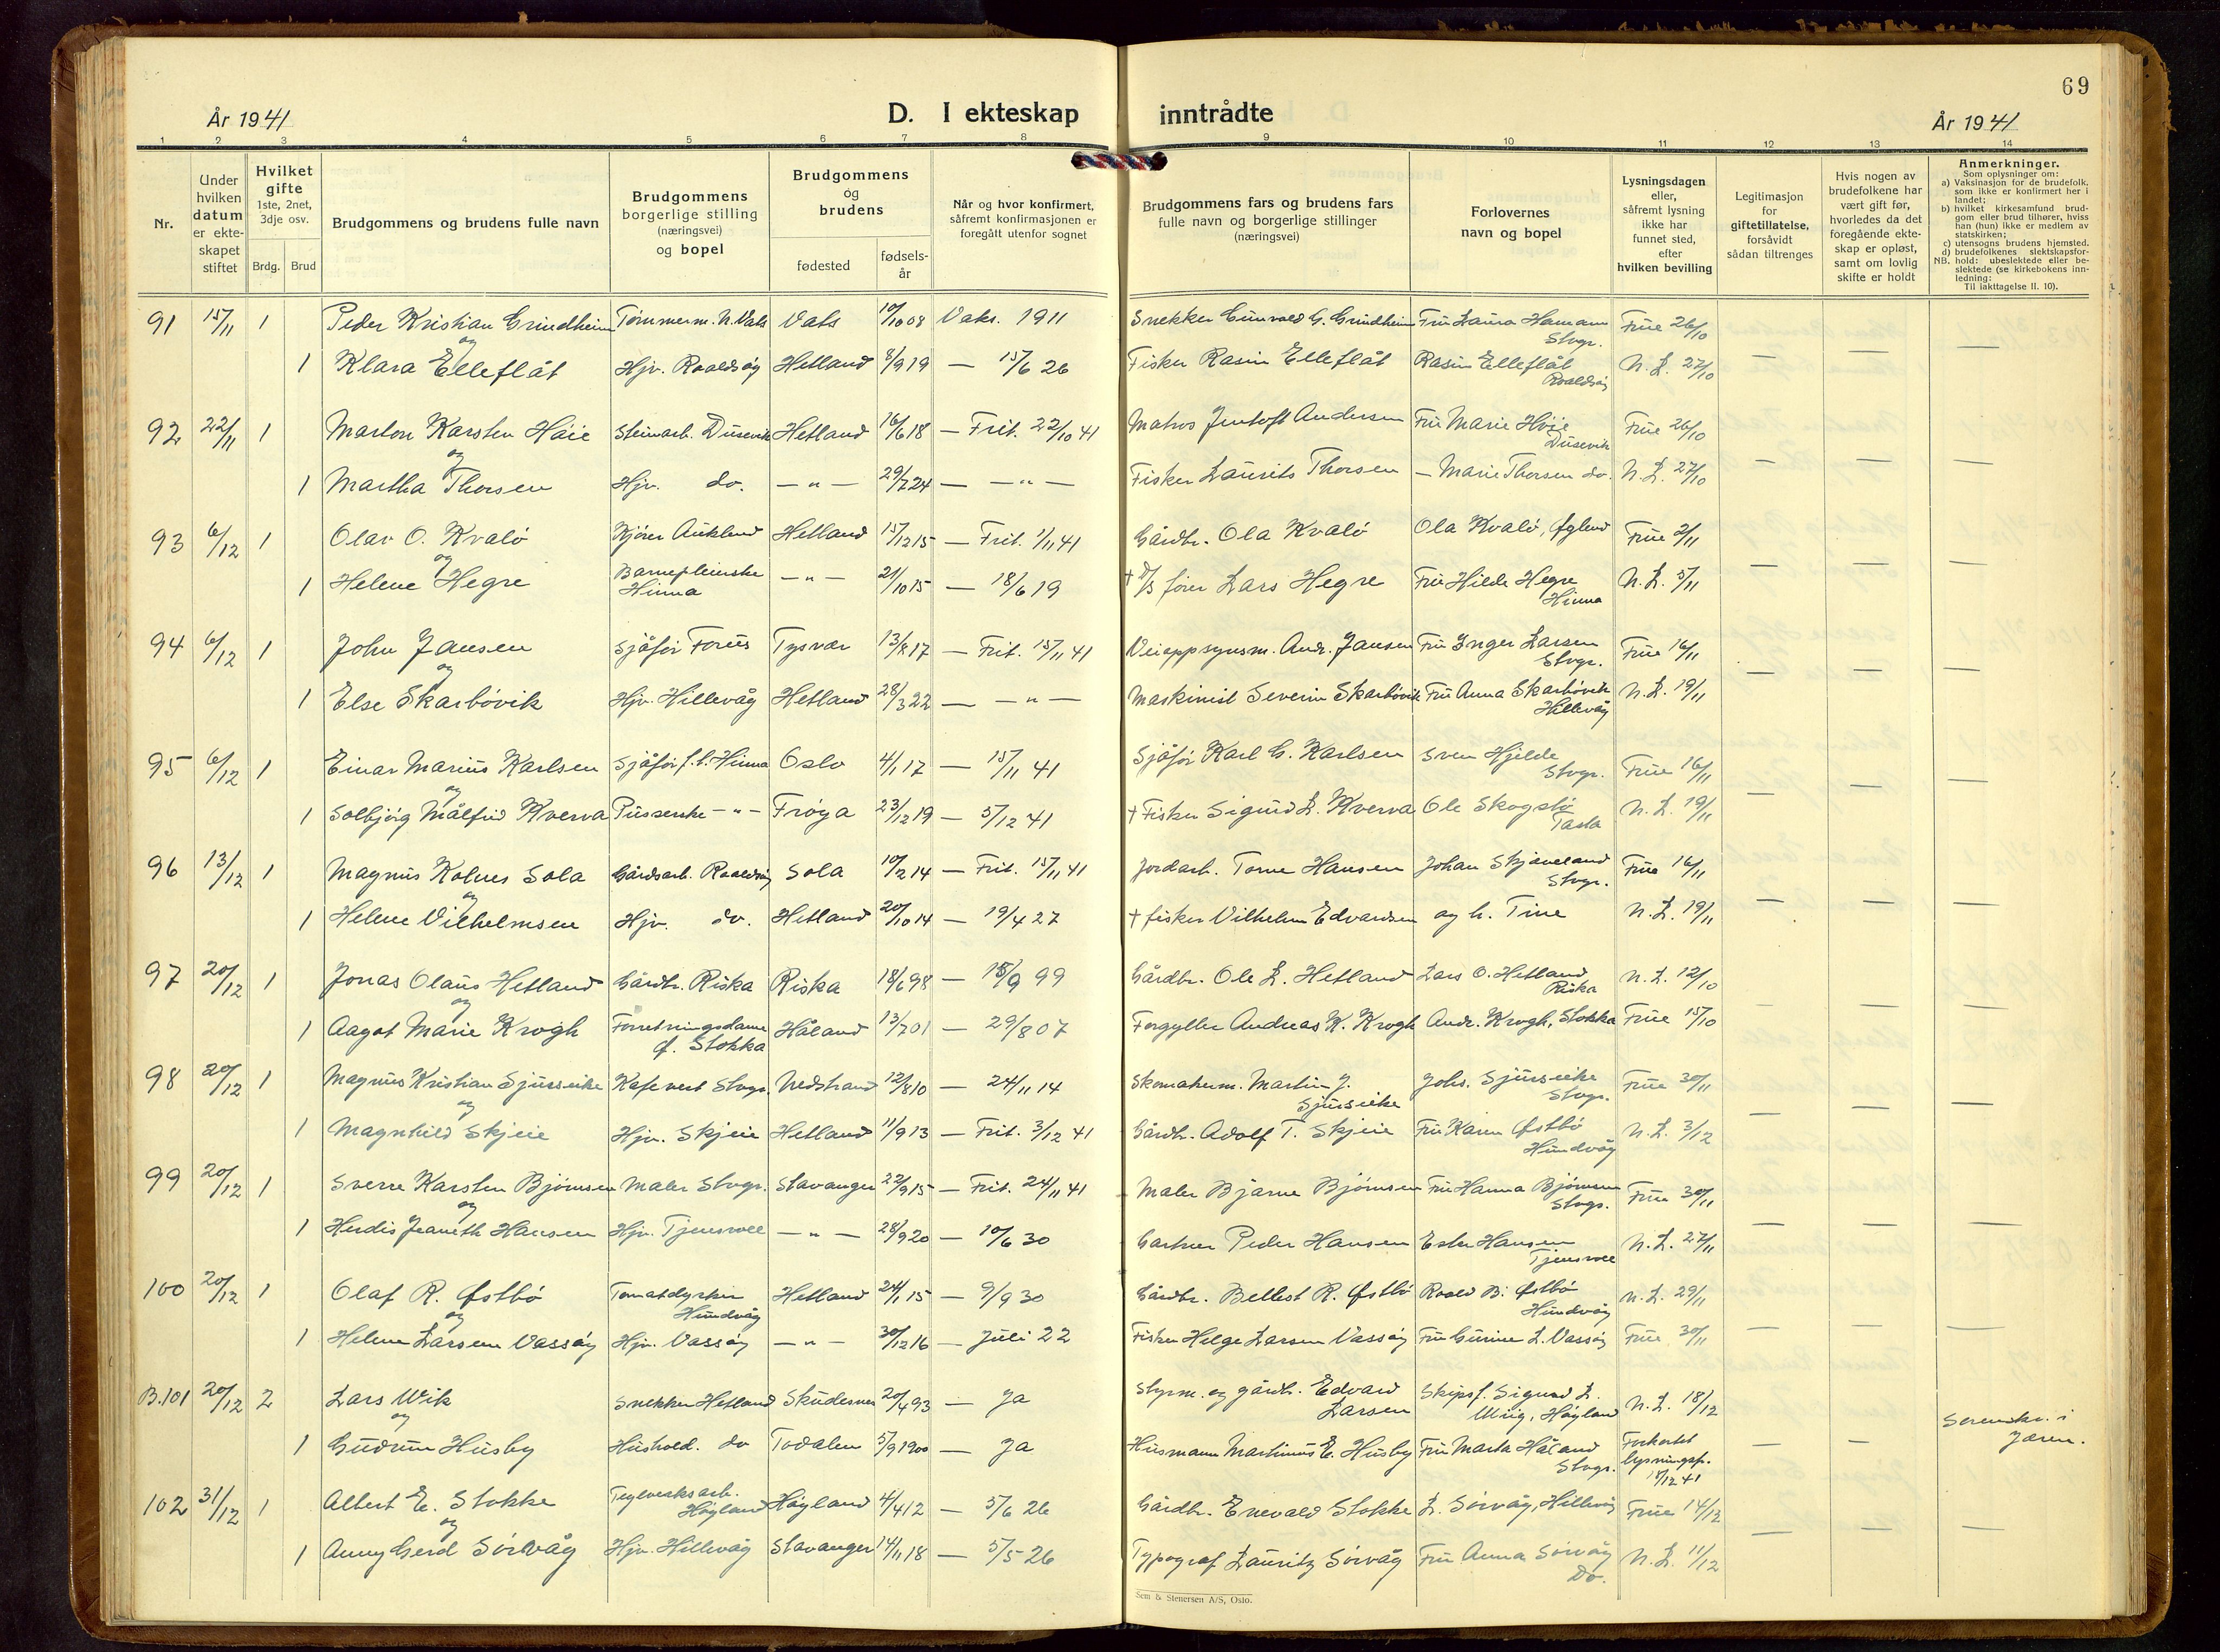 69
År 1941
D. I ekteskap inntrådte
År 1941
1 2 3 4 5 6 7 8 9 10 11 12 13 14
Nr.
Under hvilken datum er ekteskapet stiftet
Hvilket gifte 1ste, 2net, 3dje osv.
Brdg. Brud
Brudgommens og brudens fulle navn
Brudgommens borgerlige stilling (næringsvei) og bopel
Brudgommens og brudens
fødested
fødselsår
Når og hvor konfirmert, såfremt konfirmasjonen er foregått utenfor sognet
Brudgommens fars og brudens fars fulle navn og borgerlige stillinger (næringsvei)
Forlovernes navn og bopel
Lysningsdagen eller, såfremt lysning ikke har funnet sted, efter hvilken bevilling
Legitimasjon for giftetillatelse, forsåvidt sådan tiltrenges
Hvis nogen av brudefolkene har vært gift før, hvorledes da det foregående ekteskap er opløst, samt om lovlig skifte er holdt
Anmerkninger.
Som oplysninger om:
a) Vaksinasjon for de brudefolk, som ikke er konfirmert her i landet;
b) hvilket kirkesamfund brudgom eller brud tilhører, hviss han (hun) ikke er medlem av statskirken;
c) utensogns brudens hjemsted.
d) brudefolkenes slektskapsforhold: ubeslektede eller beslektede (se kirkebokens innledning;
NB.
Til iakttagelse II. 10).
91 15/11 1 Peder Kristian Grindheim Tømmerm. N. Vats Vats 10/10 08 Vaks. 1911 Snekker Gunvald G. Grindheim Fru Laura Hamann Stvgr. Frue 26/10
og
1 Klara Elleflåt Hjv. Roaldsøy Hetland 8/9 19 — 15/6 26 Fisker Rasin Elleflåt Rasin Elleflåt Roaldsøy N. L. 27/10 — — —
92 22/11 1 Marton Karsten Høie Steinarb. Dusevik Hetland 16/6 18 — Frit. 22/10 41 Matros Jentoft Andersen Fru Marie Høie Dusevik Frue 26/10
og
1 Martha Thorsen Hjv. do. — " — 29/7 24 — — " — Fisker Laurits Thorsen — Marie Thorsen do. N. L. 27/10 — — —
93 6/12 1 Olav O. Kvalø Kjører Auklend Hetland 15/12 15 — Frit. 1/11 41 Gårdbr. Ola Kvalø Ola Kvalø, Øglend Frue 2/11
og
1 Helene Hegre Barnepleierske Hinna — " — 21/10 15 — 18/6 19 † D/S fører Lars Hegre Fru Hilde Hegre Hinna N. L. 5/11 — — —
94 6/12 1 John Jansen Sjåfør Forus Tysvær 13/8 17 — Frit. 15/11 41 Veioppsynsm. Andr. Jansen Fru Inger Larsen Stvgr. Frue 16/11
og
1 Else Skarbøvik Hjv. Hillevåg Hetland 28/3 22 — — " — Maskinist Severin Skarbøvik Fru Anna Skarbøvik Hillevåg N. L. 19/11 — — —
95 6/12 1 Einar Marius Karlsen Sjåfør f.t. Hinna Oslo 4/1 17 — 15/11 41 Sjåfør Karl G. Karlsen Sven Hjelde Stvgr. Frue 16/11
og
1 Solbjørg Målfrid Kverva Pusserske — " — Frøya 23/12 19 — 5/12 41 † Fisker Sigurd L. Kverva Ole Skogstø Tasta N. L. 19/11 — — —
96 13/12 1 Magnus Kolnes Sola Gårdsarb. Roaldsøy Sola 10/2 14 — Frit. 15/11 41 Jordarb. Torne Hansen Johan Skjæveland Stvgr. Frue 16/11
og
1 Helene Vilhelmsen Hjv. do. Hetland 20/10 14 — 19/4 27 † fisker Vilhelm Edvardsen og h. Tine N. L. 19/11 — — —
97 20/12 1 Jonas Olaus Hetland Gårdbr. Riska Riska 18/6 98 — 15/9 99 Gårdbr. Ole L. Hetland Lars O. Hetland Riska N. L. 12/10
og
1 Aagot Marie Krogh Forretningsdame Ø. Stokka Håland 13/7 01 — 29/8 07 Forgyller Andreas K. Krogh Andr. Krogh, Stokka Frue 15/10 — — —
98 20/12 1 Magnus Kristian Sjurseike Kafevert Stvgr. Nedstrand 12/8 10 — 24/11 14 Skomakerm. Martin J. Sjurseike Johs. Sjurseike Stvgr. Frue 30/11
og
1 Magnhild Skjeie Hjv. Skjeie Hetland 11/9 13 — Frit. 3/12 41 Gårdbr. Adolf T. Skjeie Fru Karen Østbø Hundvåg N. L. 3/12 — — —
99 20/12 1 Sverre Karsten Bjørnsen Maler Stvgr. Stavanger 22/9 15 — Frit. 24/11 41 Maler Bjarne Bjørnsen Fru Hanna Bjørnsen Stvgr. Frue 30/11
og
1 Herdis Jeaneth Hansen Hjv. Tjensvoll — " — 28/9 20 — 10/6 30 Gartner Peder Hansen Ester Hansen Tjensvoll N. L. 27/11 — — —
100 20/12 1 Olaf R. Østbø Tomatdyrker Hundvåg Hetland 24/1 15 — 9/9 30 Gårdbr. Bellest R. Østbø Roald B. Østbø Hundvåg N. L. 29/11
og
1 Helene Larsen Vassøy Hjv. Vassøy — " — 30/12 16 — Juli 22 Fisker Helge Larsen Vassøy Fru Gurine L. Vassøy Frue 30/11 — — —
B.101 20/12 2 Lars Wik Snekker Hetland Skudesnes 20/4 93 — Ja Styrm. og gårdb. Edvard Larsen Skipsf. Sigurd L. Wiig, Høyland N. L. 18/12
og
1 Gudrun Husby Hushold. do Todalen 5/9 1900 — Ja Husmann Martinus E. Husby Fru Marta Håland Stvgr. Forkortet lysningsfr. 18/12 41 — — Sorenskr. i Jæren.
102 31/12 1 Albert E. Stokke Teglverksarb. Høyland Høyland 4/4 12 — 5/6 26 Gårdbr. Enevald Stokke L. Sørvåg, Hillevåg Frue 14/12
og
1 Anny Gerd Sørvåg Hjv. Hillevåg Stavanger 14/11 18 — 5/5 26 Typograf Lauritz Sørvåg Fru Anna Sørvåg Do. N. L. 11/12 — — —
Sem & Stenersen A/S, Oslo.